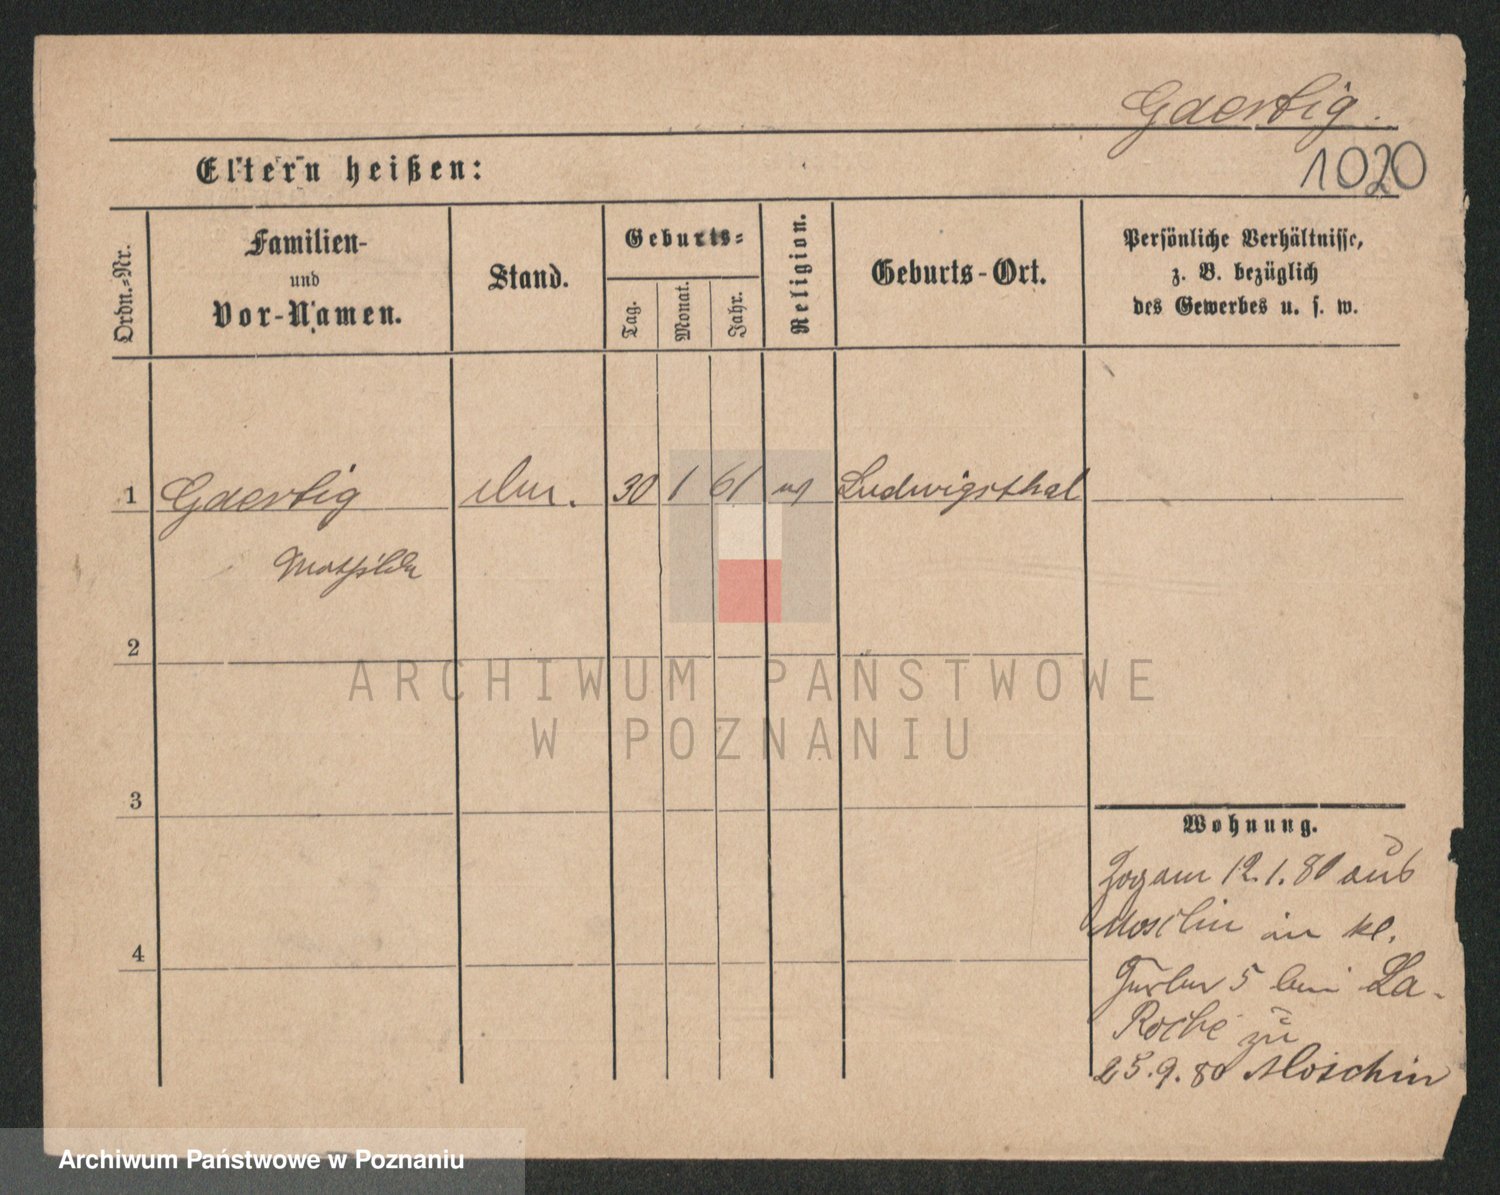 Gaertig.
Eltern heißen:
1020
Ordn.-Nr.
Familien-
und
Vor-Namen.
Stand.
Geburts-
Tag.
Monat.
Jahr.
Religion.
Geburts-Ort.
Persönliche Verhältnisse,
z. B. bezüglich
des Gewerbes u. s. w.
1 Gaertig 30 1 61 Ludwigsthal
Mathilde
2
3
4
Wohnung.
Zog am 12.1.80 aus
Moschin in kl.
5 bei La-
Roche zu
25.9.80 Moschin
ARCHIWUM PAŃSTWOWE
W POZNANIU
Archiwum Państwowe w Poznaniu